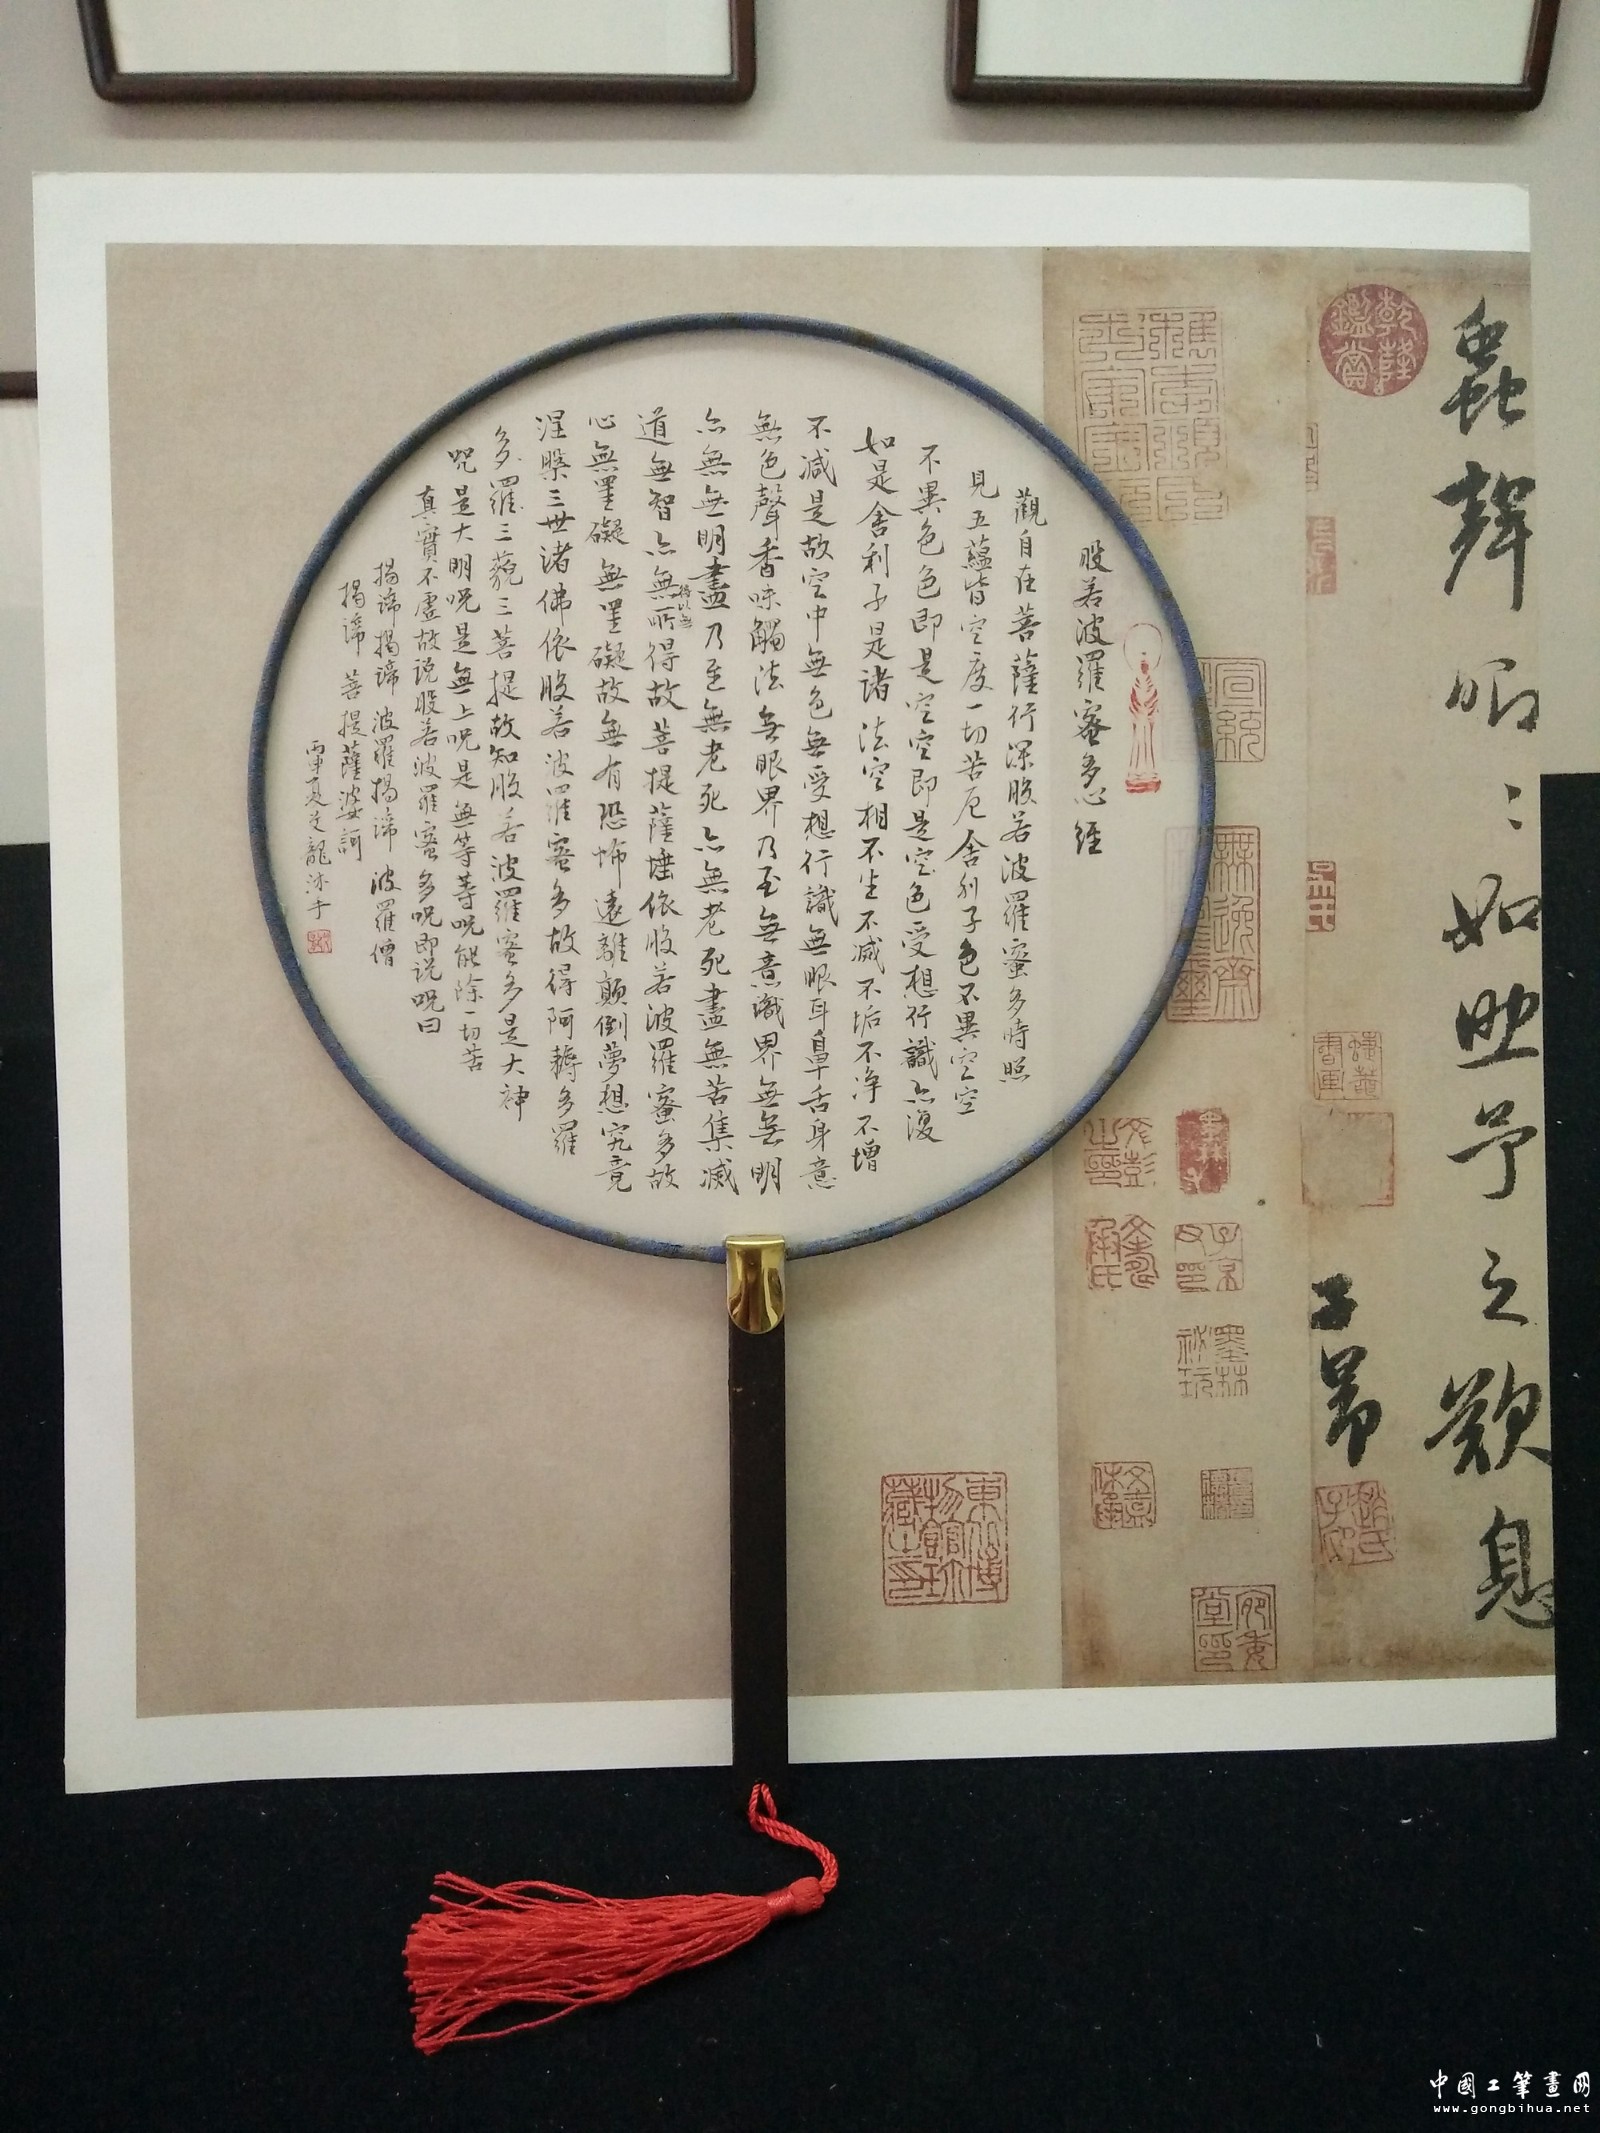 蟲聲唧〻如助予之歎息
子昂
乾隆鑑賞
般若波羅蜜多心經
觀自在菩薩行深般若波羅蜜多時照
見五蘊皆空度一切苦厄舍利子色不異空空
不異色色即是空空即是空色受想行識亦復
如是舍利子是諸法空相不生不滅不垢不净不增
不減是故空中無色無受想行識無眼耳鼻舌身意
無色聲香味觸法無眼界乃至無意識界無無明
亦無無明盡乃至無老死亦無老死盡無苦集滅
道無智亦無所得以無得故菩提薩埵依般若波羅蜜多故
心無罣礙無罣礙故無有恐怖遠離顛倒夢想究竟
涅槃三世諸佛依般若波羅蜜多故得阿耨多羅
多羅三藐三菩提故知般若波羅蜜多是大神
咒是大明咒是無上咒是無等等咒能除一切苦
真實不虛故说般若波羅蜜多咒即说咒曰
揭諦揭諦波羅揭諦波羅僧
揭諦菩提薩婆訶
丙申夏艾龍沐手
中國工筆畫网
www.gongbihua.net